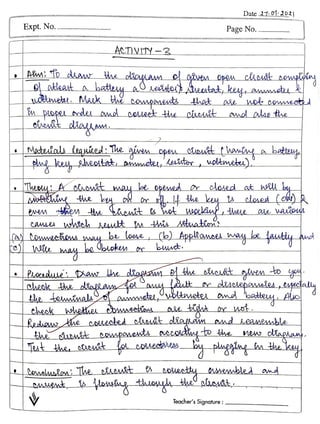 Date 27.07.2021
Expt. No.
Page No.
ACTIVITY - 3
• Aim: To draw the diagram of given open circuit comprising
of atleast a battery a resistor, rheostat, key, ammeter &
voltmeter. Mark the components that are not connected
in proper order and correct the circuit and also the
circuit diagram.
• Materials Required: The given open circuit (having a battery,
plug key, rheostat, ammeter, resistor, voltmeter).
• Theory: A circuit may be opened or closed at will by
switching the key on or off. If the key is closed (on) &
even then the circuit is not working, there are various
causes which result in this situation:
(a) Connections may be loose, (b) Appliances may be faulty and
(c) Wire may be broken or burnt.
• Procedure: Draw the diagram of the circuit given to you.
check the diagram for any fault or discrepancies, especially
the terminals of ammeter, voltmeter and battery. Also
check whether connections are tight or not.
Redraw the corrected circuit diagram and reassemble
the circuit components according to the new diagram.
Test the circuit for correctness by plugging in the key.
• Conclusion: The circuit is correctly assembled and
current is flowing through the circuit.
Teacher's Signature :